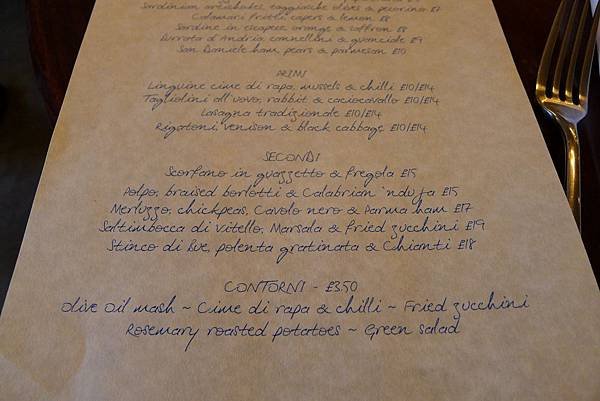 Sardinian artichokes, taggiasche olives & pecorino £7
Calamari fritti, capers & lemon £8
Sardine in escapece, orange & saffron £8
Burrata d'Andria, cannellini & guanciale £9
San Daniele ham, pears & parmesan £10
PRIMI
Linguine cime di rapa, mussels & chilli £10/£14
Tagliolini all'uovo, rabbit & caciocavallo £10/£14
Lasagna tradizionale £10/£14
Rigatoni venison & black cabbage £10/£14
SECONDI
Scorfano in guazzetto & Fregola £15
Polpo, braised borlotti & Calabrian 'nduja £15
Merluzzo, chickpeas, Cavolo nero & Parma ham £17
Saltimbocca di Vitello, Marsala & Fried zucchini £19
Stinco di Bue, polenta gratinata & Chianti £18
CONTORNI - £3.50
Olive Oil mash ~ Cime di rapa & chilli ~ Fried zucchini
Rosemary roasted potatoes ~ Green salad